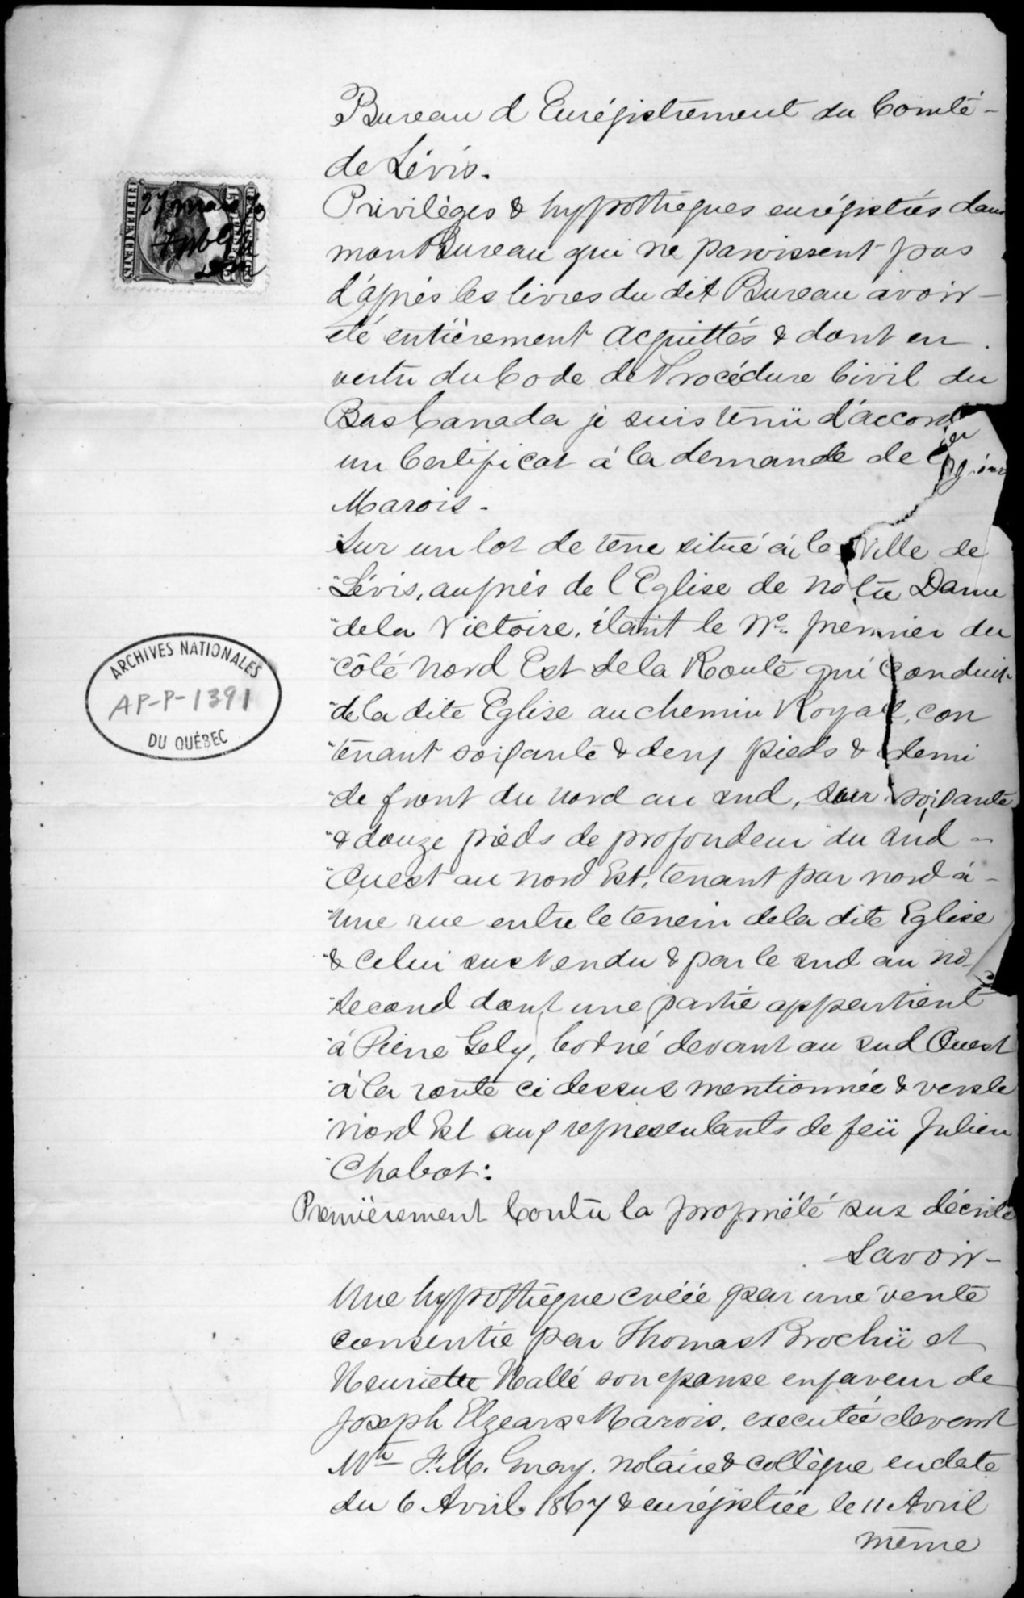 Bureau d Enrégistrement du Comté
de Lévis.
Privilèges & hypothèques enrégistrés dans
mon Bureau qui ne paroissent pas
d'après les livres du dit Bureau avoir
été entièrement acquittés & dont en
vertu du Code de Procédure Civil du
Bas Canada je suis tenu d'accorder
un Certificat à la demande de
Marois.
"Sur un lot de terre situé à la Ville de
"Lévis, auprès de l'Eglise de Notre Dame
"de la Victoire, étant le No. premier du
"côté nord Est de la Route qui conduit
"de la dite Eglise au chemin Royal, con
"tenant soixante & deux pieds & demi
"de front du nord au sud, sur soixante
"& douze pieds de profondeur du sud
"Ouest au nord Est, tenant par nord à
"une rue entre le terrein de la dite Eglise
"& celui sus vendu & par le sud au no
"second dont une partie appartient
"à Pierre Gely, borné devant au sud Ouest
"à la route ci dessus mentionnée & vers le
"nord Est aux représentants de feu Julien
"Chabot:
Premièrement Contre la propriété sus décrite
Savoir
Une hypothèque créée par une vente
consentie par Thomas Brochu et
Henriette Hallé son épouse en faveur de
Joseph Elzear Marois, executée devant
Mtre F. M. Guay, notaire & collègue en date
du 6 Avril 1867 & enrégistrée le 11 Avril
même
27 mars 70
ARCHIVES NATIONALES
AP-P-1391
DU QUÉBEC